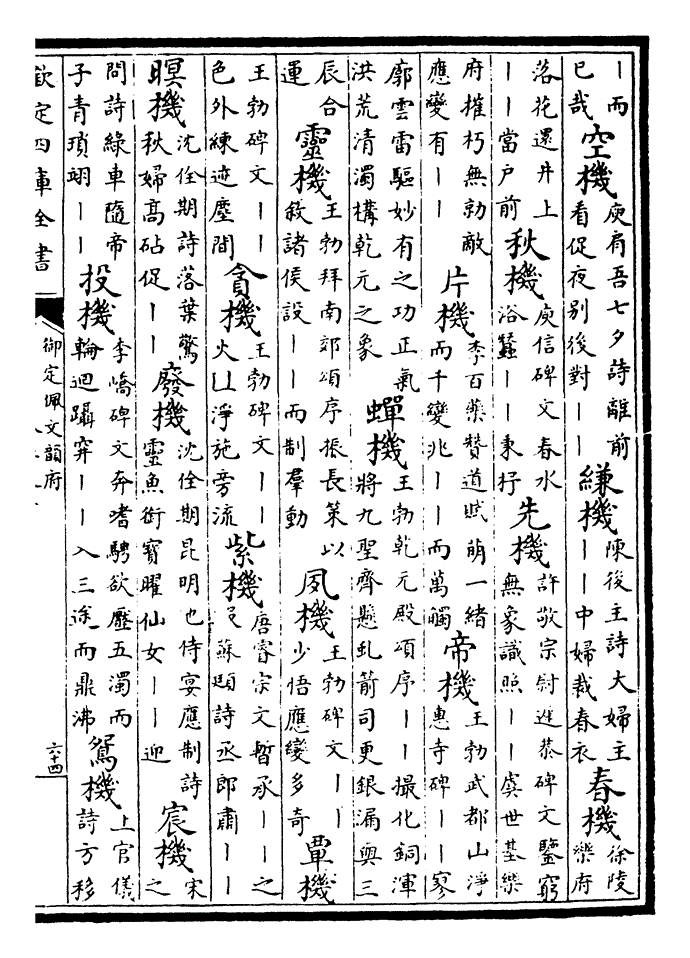 丨而巳哉 空機 庾肩吾七夕詩離前看促夜別後對丨丨 縑機 陳後主詩大婦主丨丨中婦裁春衣 春機 徐陵樂府
落花還井上丨丨當戶前 秋機 庾信碑文春水浴蠶丨丨東杼 先機 許敬宗尉遲恭碑文鑒窮無象識照丨丨虞世基樂
府摧朽無勍敵應變有丨丨 片機 李百藥贊道賦萌一緒而千變兆丨丨而萬觸 帝機 王勃武都山淨惠寺碑丨丨寥
廓雲雷驅妙有之功正氣洪荒清濁構乾元之象 蟬機 王勃乾元殿頌序丨丨撮化銅渾將九聖齊懸虬箭司更銀漏與三
辰合運 靈機 王勃拜南郊頌序振長策以敘諸侯設丨丨而制羣動 夙機 王勃碑文丨丨少悟應變多奇 單機
王勃碑文丨丨色外練迹塵間 貪機 王勃碑文丨丨火淨施旁流 紫機 唐睿宗文暫承丨丨之蘇頲詩丞郎肅丨丨
暝機 沈佺期詩落葉驚秋婦高砧促丨丨 廢機 沈佺期昆明池侍宴應制詩靈魚銜寶躍仙女丨丨迎 宸機 宋之
問詩綠車隨帝子青瑣翊丨丨 投機 李嶠碑文奔嗜騁欲壓五濁而輪迴躡穽丨丨入三途而鼎沸 鴛機 上官儀詩方移
欽定四庫全書
御定佩文韻府
六十四